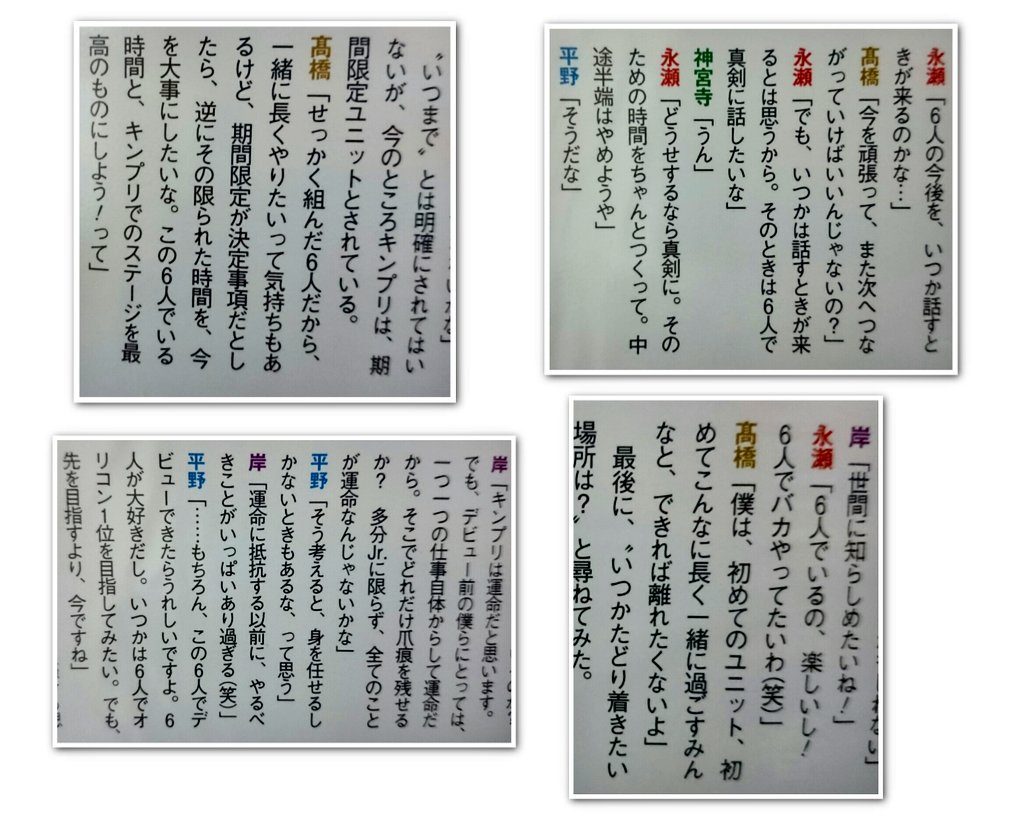 〝いつまで〟とは明確にされてはい
ないが、今のところキンプリは、期
間限定ユニットとされている。
髙橋「せっかく組んだ6人だから、
一緒に長くやりたいって気持ちもあ
るけど、期間限定が決定事項だとし
たら、逆にその限られた時間を、今
を大事にしたいな。この6人でいる
時間と、キンプリでのステージを最
高のものにしよう!って」
永瀬「6人の今後を、いつか話すと
きが来るのかな…」
髙橋「今を頑張って、また次へつな
がっていけばいいんじゃないの?」
永瀬「でも、いつかは話すときが来
るとは思うから。そのときは6人で
真剣に話したいな」
神宮寺「うん」
永瀬「どうせするなら真剣に。その
ための時間をちゃんとつくって。中
途半端はやめようや」
平野「そうだな」
岸「キンプリは運命だと思います。
でも、デビュー前の僕らにとっては、
一つ一つの仕事自体からして運命だ
から。そこでどれだけ爪痕を残せる
か? 多分Jr.に限らず、全てのこと
が運命なんじゃないかな」
平野「そう考えると、身を任せるし
かないときもあるな、って思う」
岸「運命に抵抗する以前に、やるべ
きことがいっぱいあり過ぎる(笑)」
平野「……もちろん、この6人でデ
ビューできたらうれしいですよ。6
人が大好きだし。いつかは6人でオ
リコン1位を目指してみたい。でも、
先を目指すより、今ですね」
岸「世間に知らしめたいね!」
永瀬「6人でいるの、楽しいし!
6人でバカやってたいわ(笑)」
髙橋「僕は、初めてのユニット、初
めてこんなに長く一緒に過ごすみん
なと、できれば離れたくないよ」
最後に、〝いつかたどり着きたい
場所は?〟と尋ねてみた。